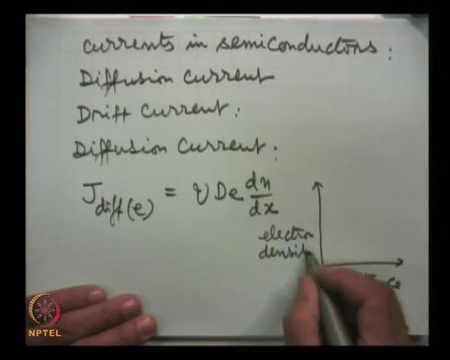 currents in semiconductors:
Diffusion Current
Drift Current:
Diffusion Current:
J diff(e) = q De dn/dx
electron
densit
NPTEL